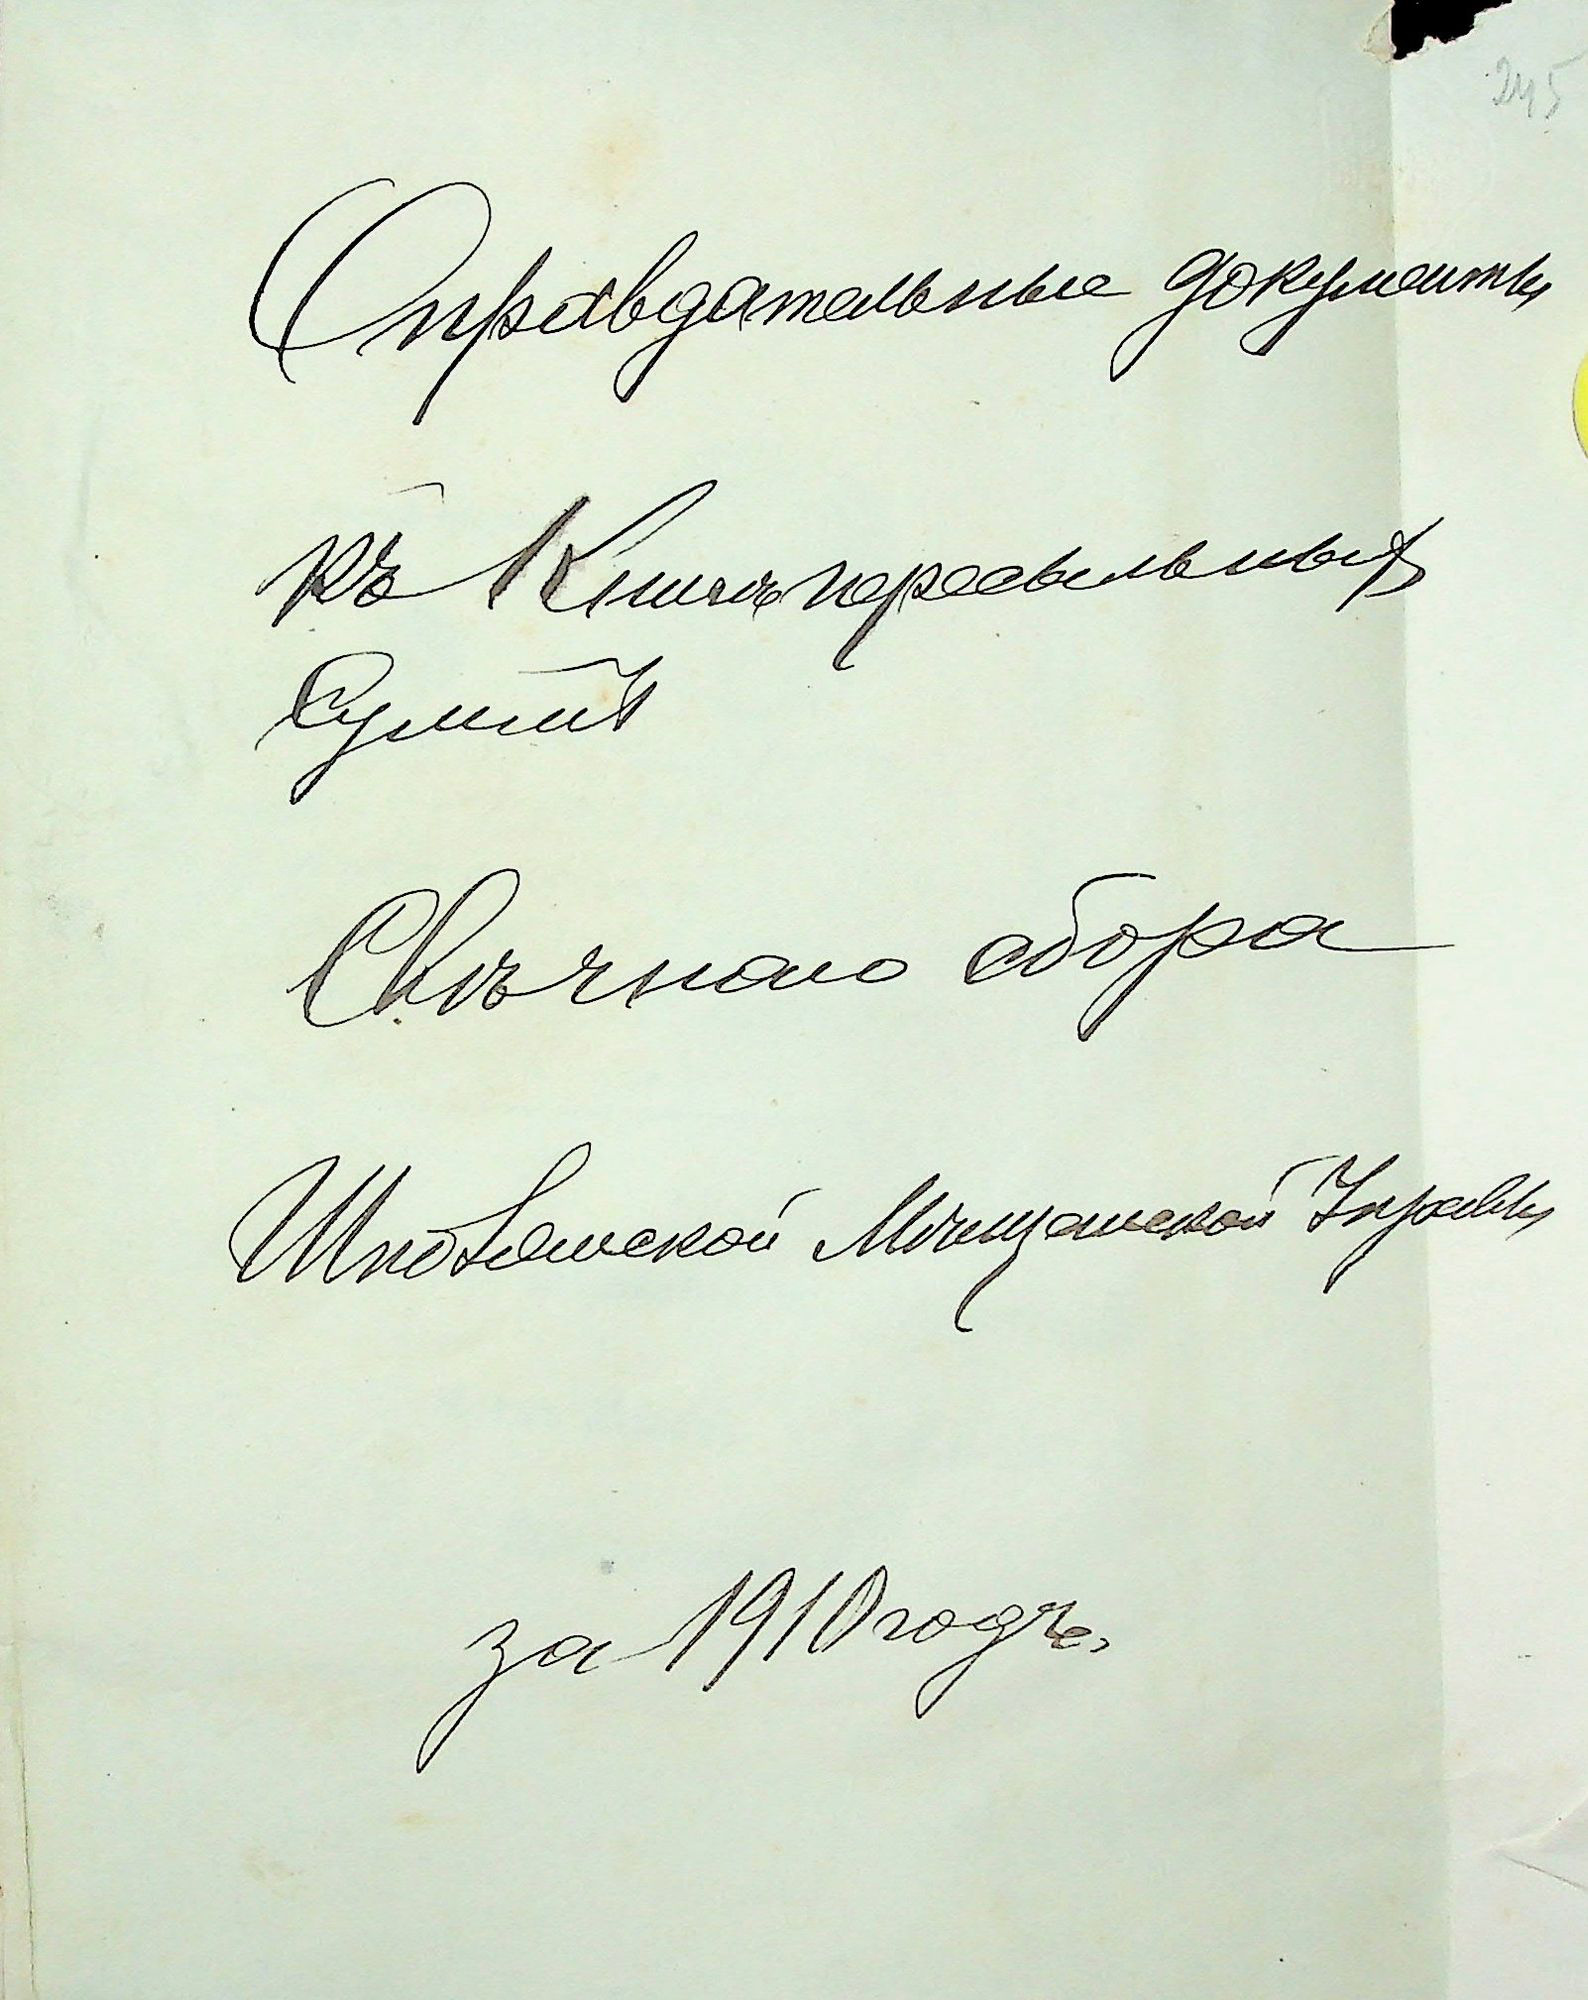 245
Оправдательные документы
къ Книгѣ пересыльныхъ
Суммъ
Свѣчнаго сбора
Шполянской Мѣщанской Управы
за 1910 годъ,